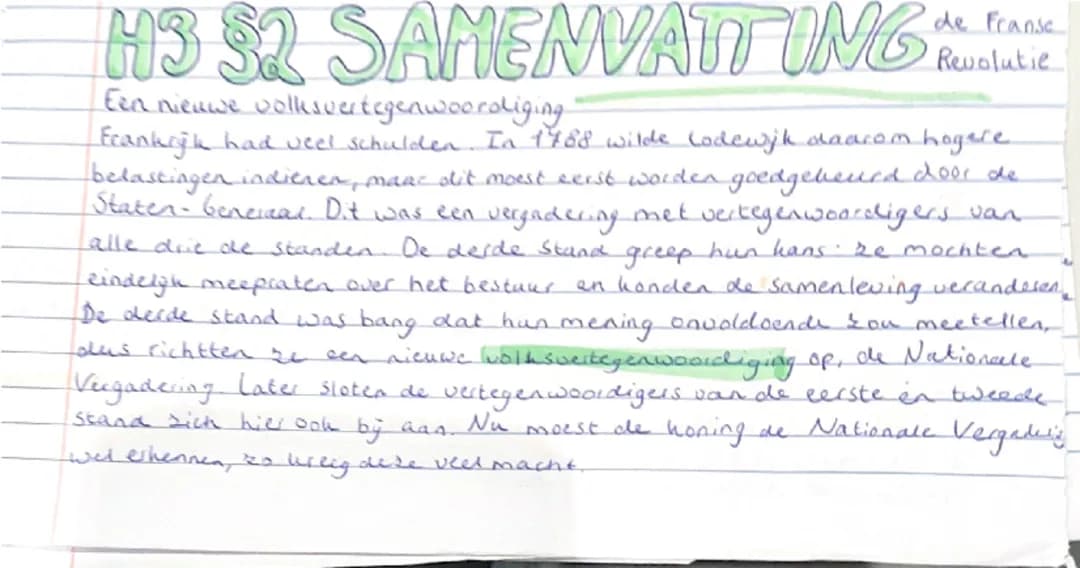 H3 §2 SAMENVATTING de Franse Revolutie
Een nieuwe volksvertegenwoordiging
Frankrijk had veel schulden. In 1788 wilde Lodewijk daarom hogere
belastingen indienen, maar dit moest eerst worden goedgekeurd door de
Staten-Generaal. Dit was een vergadering met vertegenwoordigers van
alle drie de standen. De derde stand greep hun kans: ze mochten
eindelijk meepraten over het bestuur en konden de samenleving veranderen.
De derde stand was bang dat hun mening onvoldoende zou meetellen,
dus richtten ze een nieuwe volksvertegenwoordiging op, de Nationale
Vergadering. Later sloten de vertegenwoordigers van de eerste én tweede
stand zich hier ook bij aan. Nu moest de koning de Nationale Vergadering
wel erkennen, zo kreeg deze veel macht.